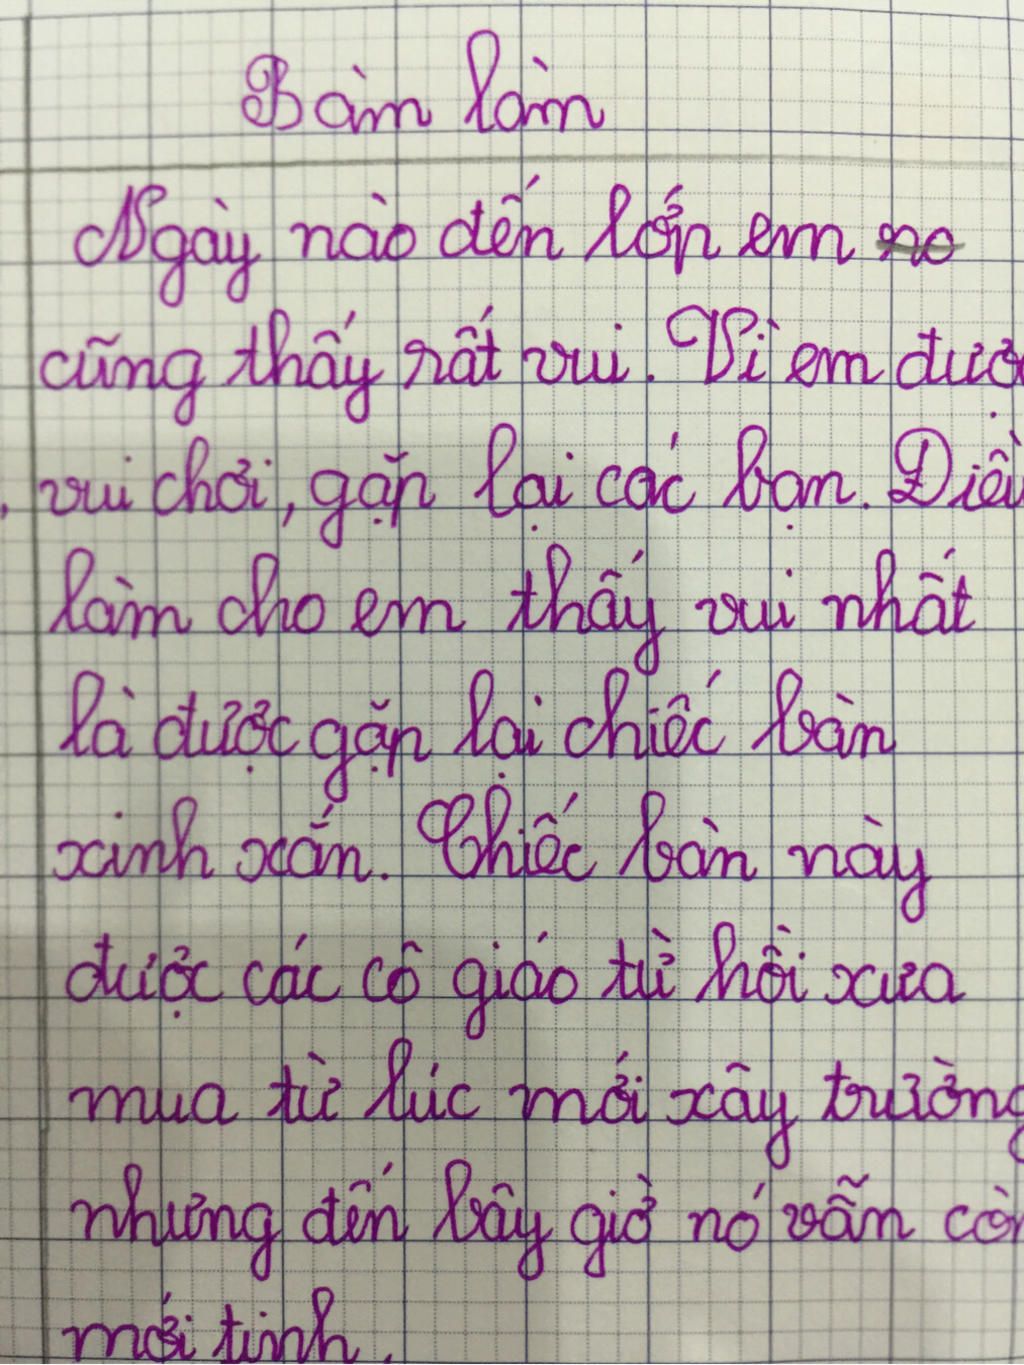 Bàm làm
Ngày nào đến lớp em
cũng thấy rất vui. Vì em được
vui chơi, gặp lại các bạn. Điều
làm cho em thấy vui nhất
là được gặp lại chiếc bàn
xinh xắn. Chiếc bàn này
được các cô giáo từ hồi xưa
mua từ lúc mới xây trường
nhưng đến bây giờ nó vẫn còn
mới tinh.